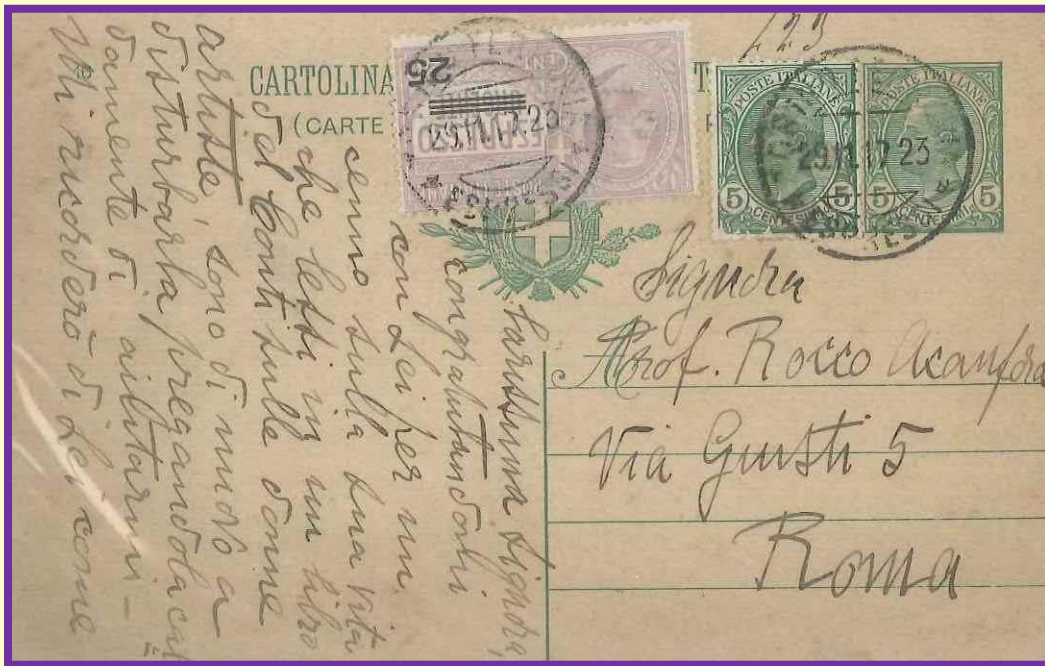 223
CARTOLINA
(CARTE
25
CENT
29.11.17.23
POSTE ITALIANE
5
5
CENTESIMI
POSTE ITALIANE
5
5
CENTESIMI
29.11.17.23
Signora
Prof. Rocco Acanfora
Via Giusti 5
Roma
Carissima Signora,
congratulandomi
con Lei per un
cenno sulla sua vita
che lessi in un libro
del Conti sulle donne
artiste, sono di nuovo a
disturbarla pregandola cal
damente di aiutarmi –
Mi ricorderò di Lei come